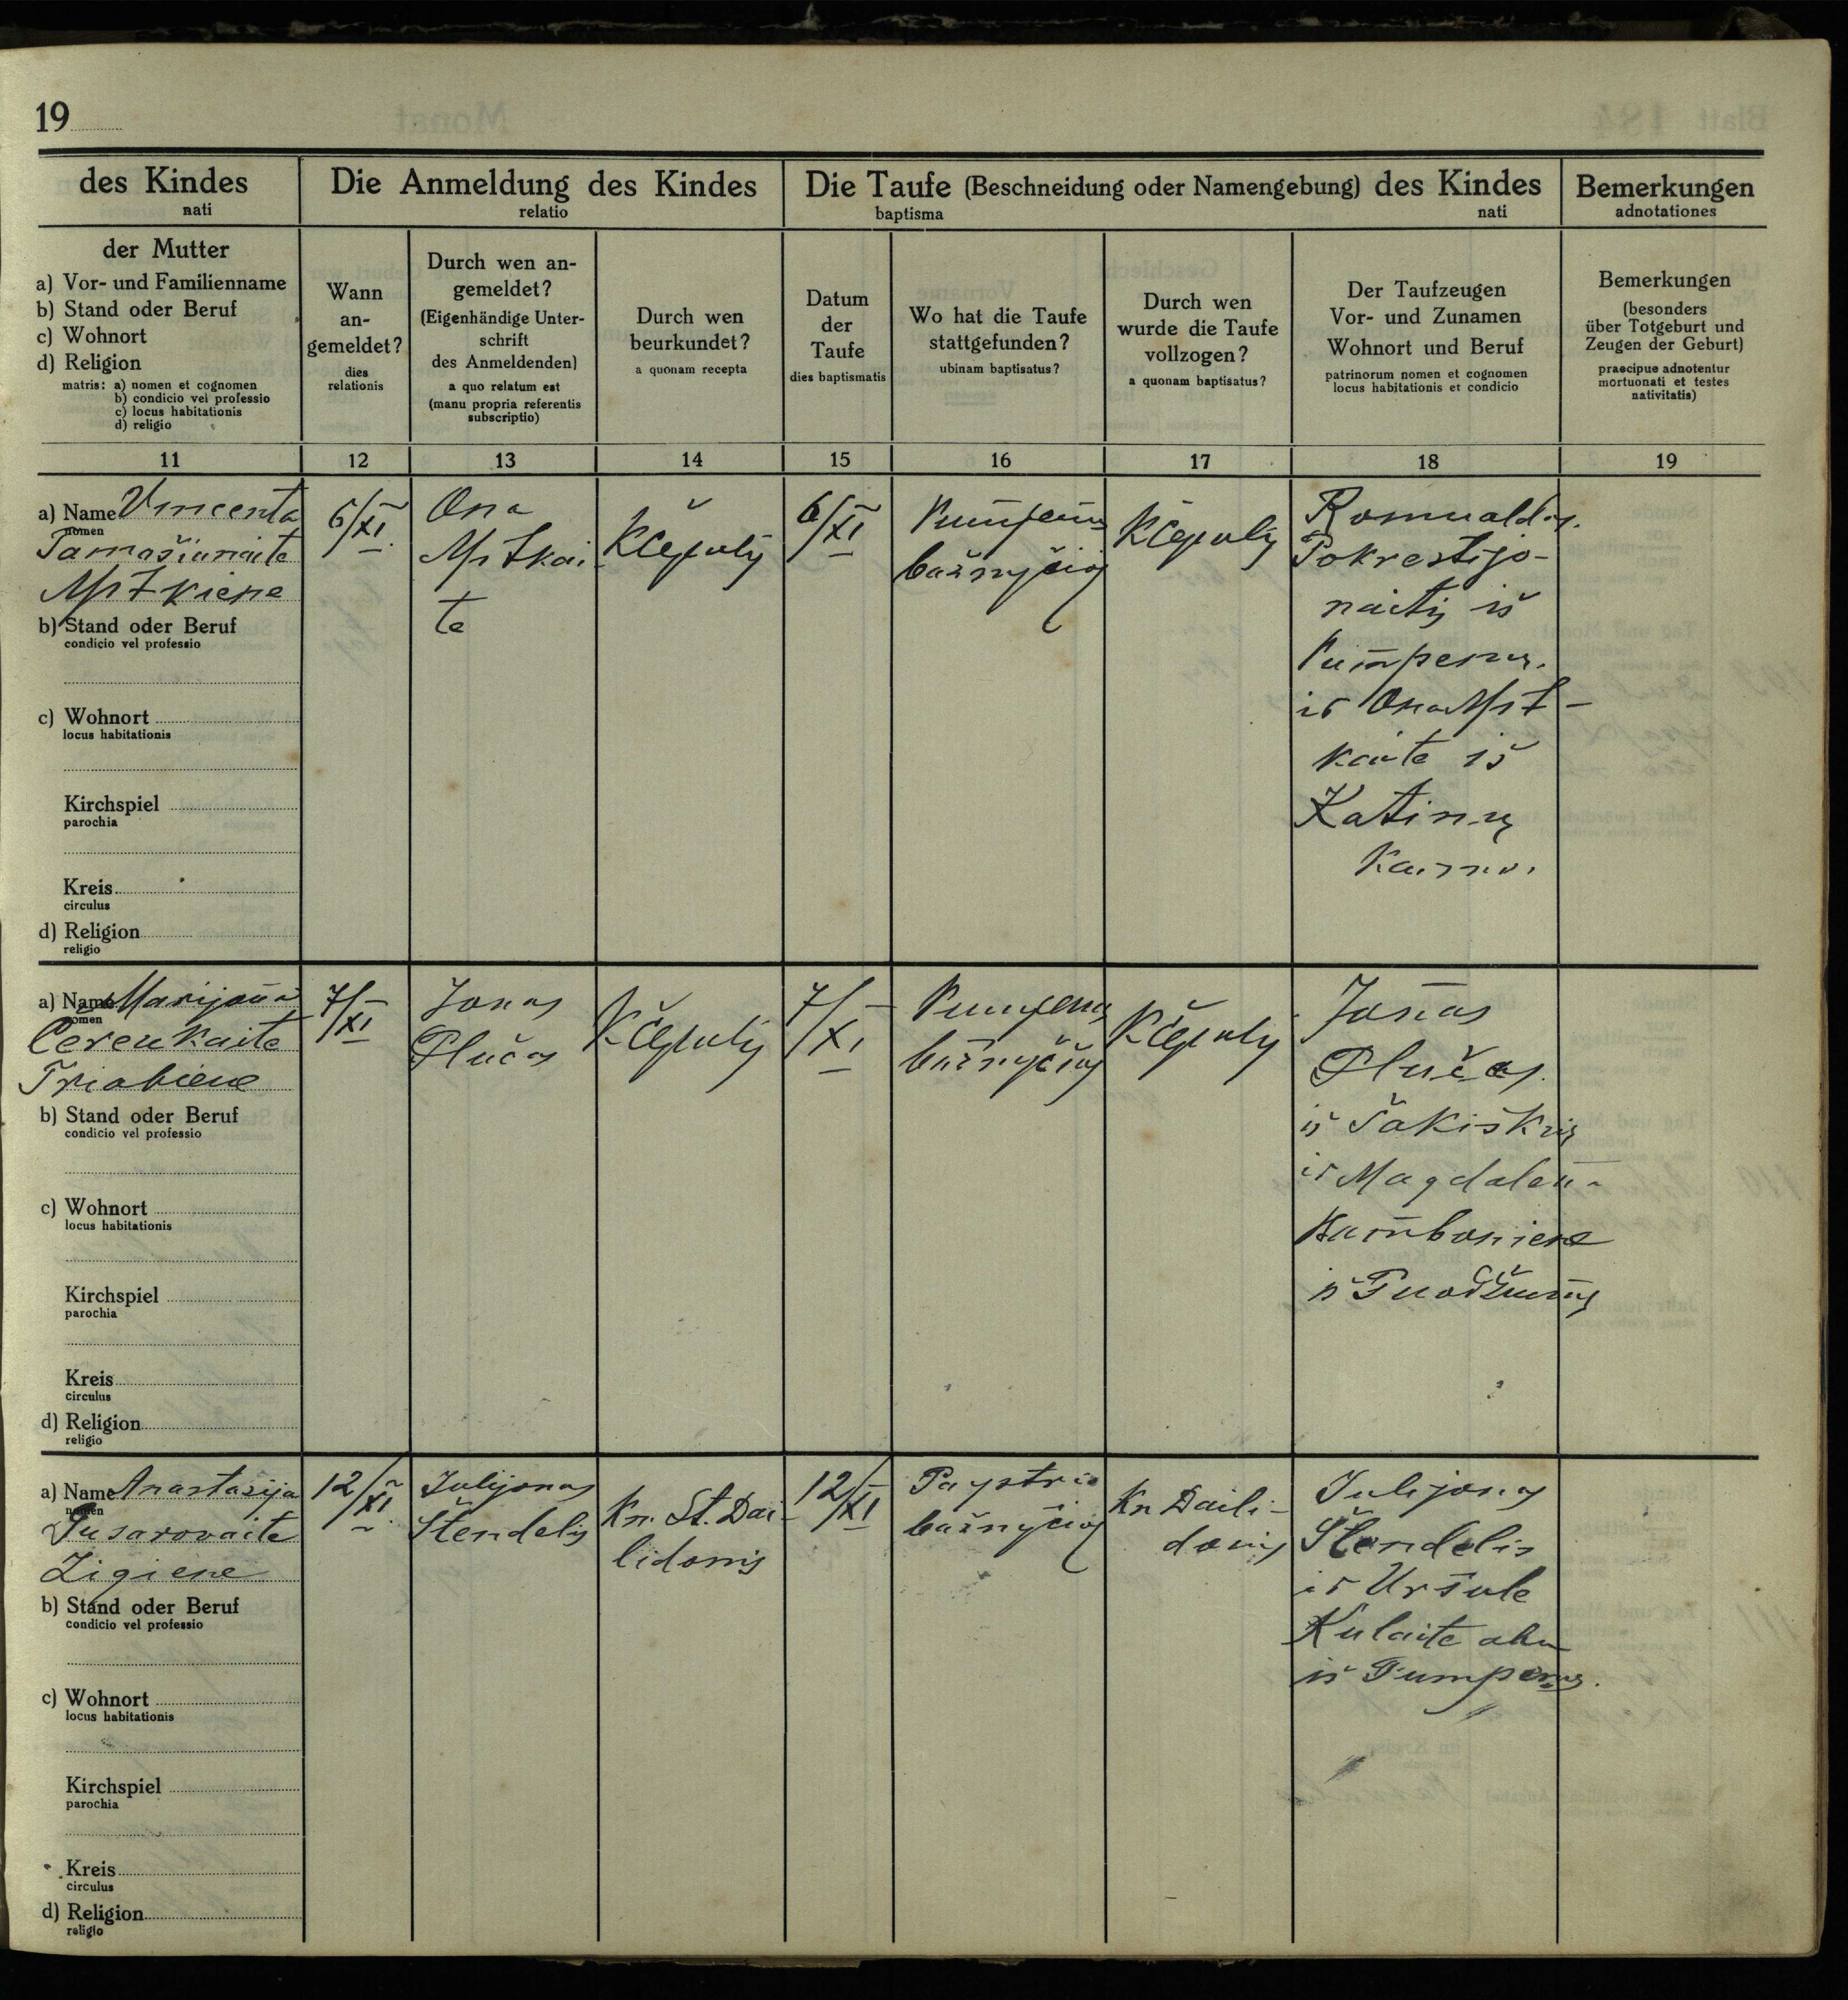 19
des Kindes
nati
Die Anmeldung des Kindes
relatio
Die Taufe (Beschneidung oder Namengebung) des Kindes
baptisma nati
Bemerkungen
adnotationes
der Mutter
a) Vor- und Familienname
b) Stand oder Beruf
c) Wohnort
d) Religion
matris: a) nomen et cognomen
b) condicio vel professio
c) locus habitationis
d) religio
Wann
an-
gemeldet?
dies
relationis
Durch wen an-
gemeldet?
(Eigenhändige Unter-
schrift
des Anmeldenden)
a quo relatum est
(manu propria referentis
subscriptio)
Durch wen
beurkundet?
a quonam recepta
Datum
der
Taufe
dies baptismatis
Wo hat die Taufe
stattgefunden?
ubinam baptisatus?
Durch wen
wurde die Taufe
vollzogen?
a quonam baptisatus?
Der Taufzeugen
Vor- und Zunamen
Wohnort und Beruf
patrinorum nomen et cognomen
locus habitationis et condicio
Bemerkungen
(besonders
über Totgeburt und
Zeugen der Geburt)
praecipue adnotentur
mortuonati et testes
nativitatis)
11 12 13 14 15 16 17 18 19
a) Name Vincenta
nomen
Tamašiunaite
b) Stand oder Beruf
condicio vel professio
c) Wohnort
locus habitationis
Kirchspiel
parochia
Kreis
circulus
d) Religion
religio
6/XI
Ona
6/XI
bažnyčioj
Romualdas
Pokrestijo-
naitis iš
Pumpenu
ir Ona
kaite iš
Katinų
Kaimo
a) Name Marijona
nomen
Čerenkaite
b) Stand oder Beruf
condicio vel professio
c) Wohnort
locus habitationis
Kirchspiel
parochia
Kreis
circulus
d) Religion
religio
7/XI
Jonas
Plučas
7/XI
Pumpenų
bažnyčioj
Jonas
Plučas
iš
ir Magdalena
a) Name Anastasija
nomen
b) Stand oder Beruf
condicio vel professio
c) Wohnort
locus habitationis
Kirchspiel
parochia
Kreis
circulus
d) Religion
religio
12/XI
Julijonas
Štendelis
Kn. St. Dai-
lidonis
12/XI
bažnyčioj
Kn Daili-
donis
Julijonas
Štendelis
ir Uršule
Kulaite abu
iš Pumpenų.